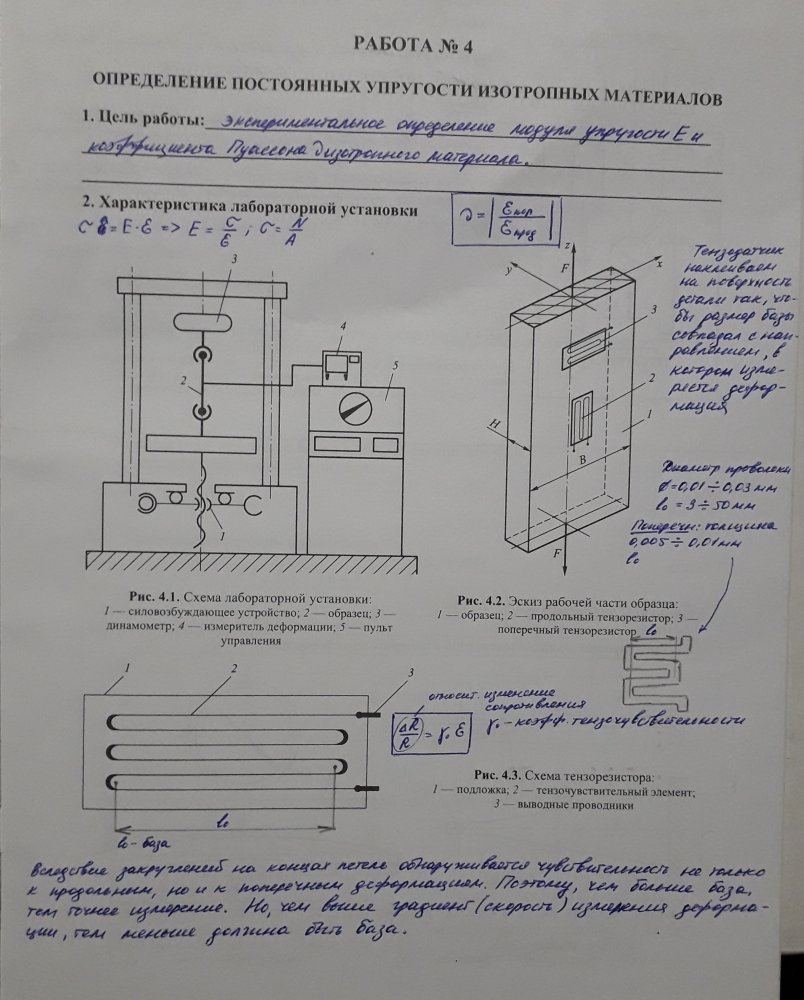 РАБОТА № 4
ОПРЕДЕЛЕНИЕ ПОСТОЯННЫХ УПРУГОСТИ ИЗОТРОПНЫХ МАТЕРИАЛОВ
1. Цель работы: экспериментальное определение модуля упругости E и
коэффициента Пуассона изотропного материала.
2. Характеристика лабораторной установки
σ = E·ε => E = σ/ε ; σ = N/A
ν = |ε поп / ε прод|
3
4
5
2
1
z
y
F
x
3
2
1
H
B
F
Тензодатчик
наклеиваем
на поверхность
детали так, что-
бы размер базы
совпадал с нап-
равлением, в
котором изме-
ряется дефор-
мация
Диаметр проволоки
ø=0,01÷0,03 мм
l₀ = 3÷50 мм
Поперечн: толщина
0,005÷0,01 мм
l₀
Рис. 4.1. Схема лабораторной установки:
1 — силовозбуждающее устройство; 2 — образец; 3 —
динамометр; 4 — измеритель деформации; 5 — пульт
управления
Рис. 4.2. Эскиз рабочей части образца:
1 — образец; 2 — продольный тензорезистор; 3 —
поперечный тензорезистор
l₀
1
2
3
относит. изменение
сопротивления
ΔR/R = γ₀ ε
γ₀ - коэфф. тензочувствительности
Рис. 4.3. Схема тензорезистора:
1 — подложка; 2 — тензочувствительный элемент;
3 — выводные проводники
l₀
l₀ - база
Вследствие закруглений на концах петель обнаруживается чувствительность не только
к продольным, но и к поперечным деформациям. Поэтому, чем больше база,
тем точнее измерение. Но, чем выше градиент (скорость) измерения деформа-
ции, тем меньше должна быть база.